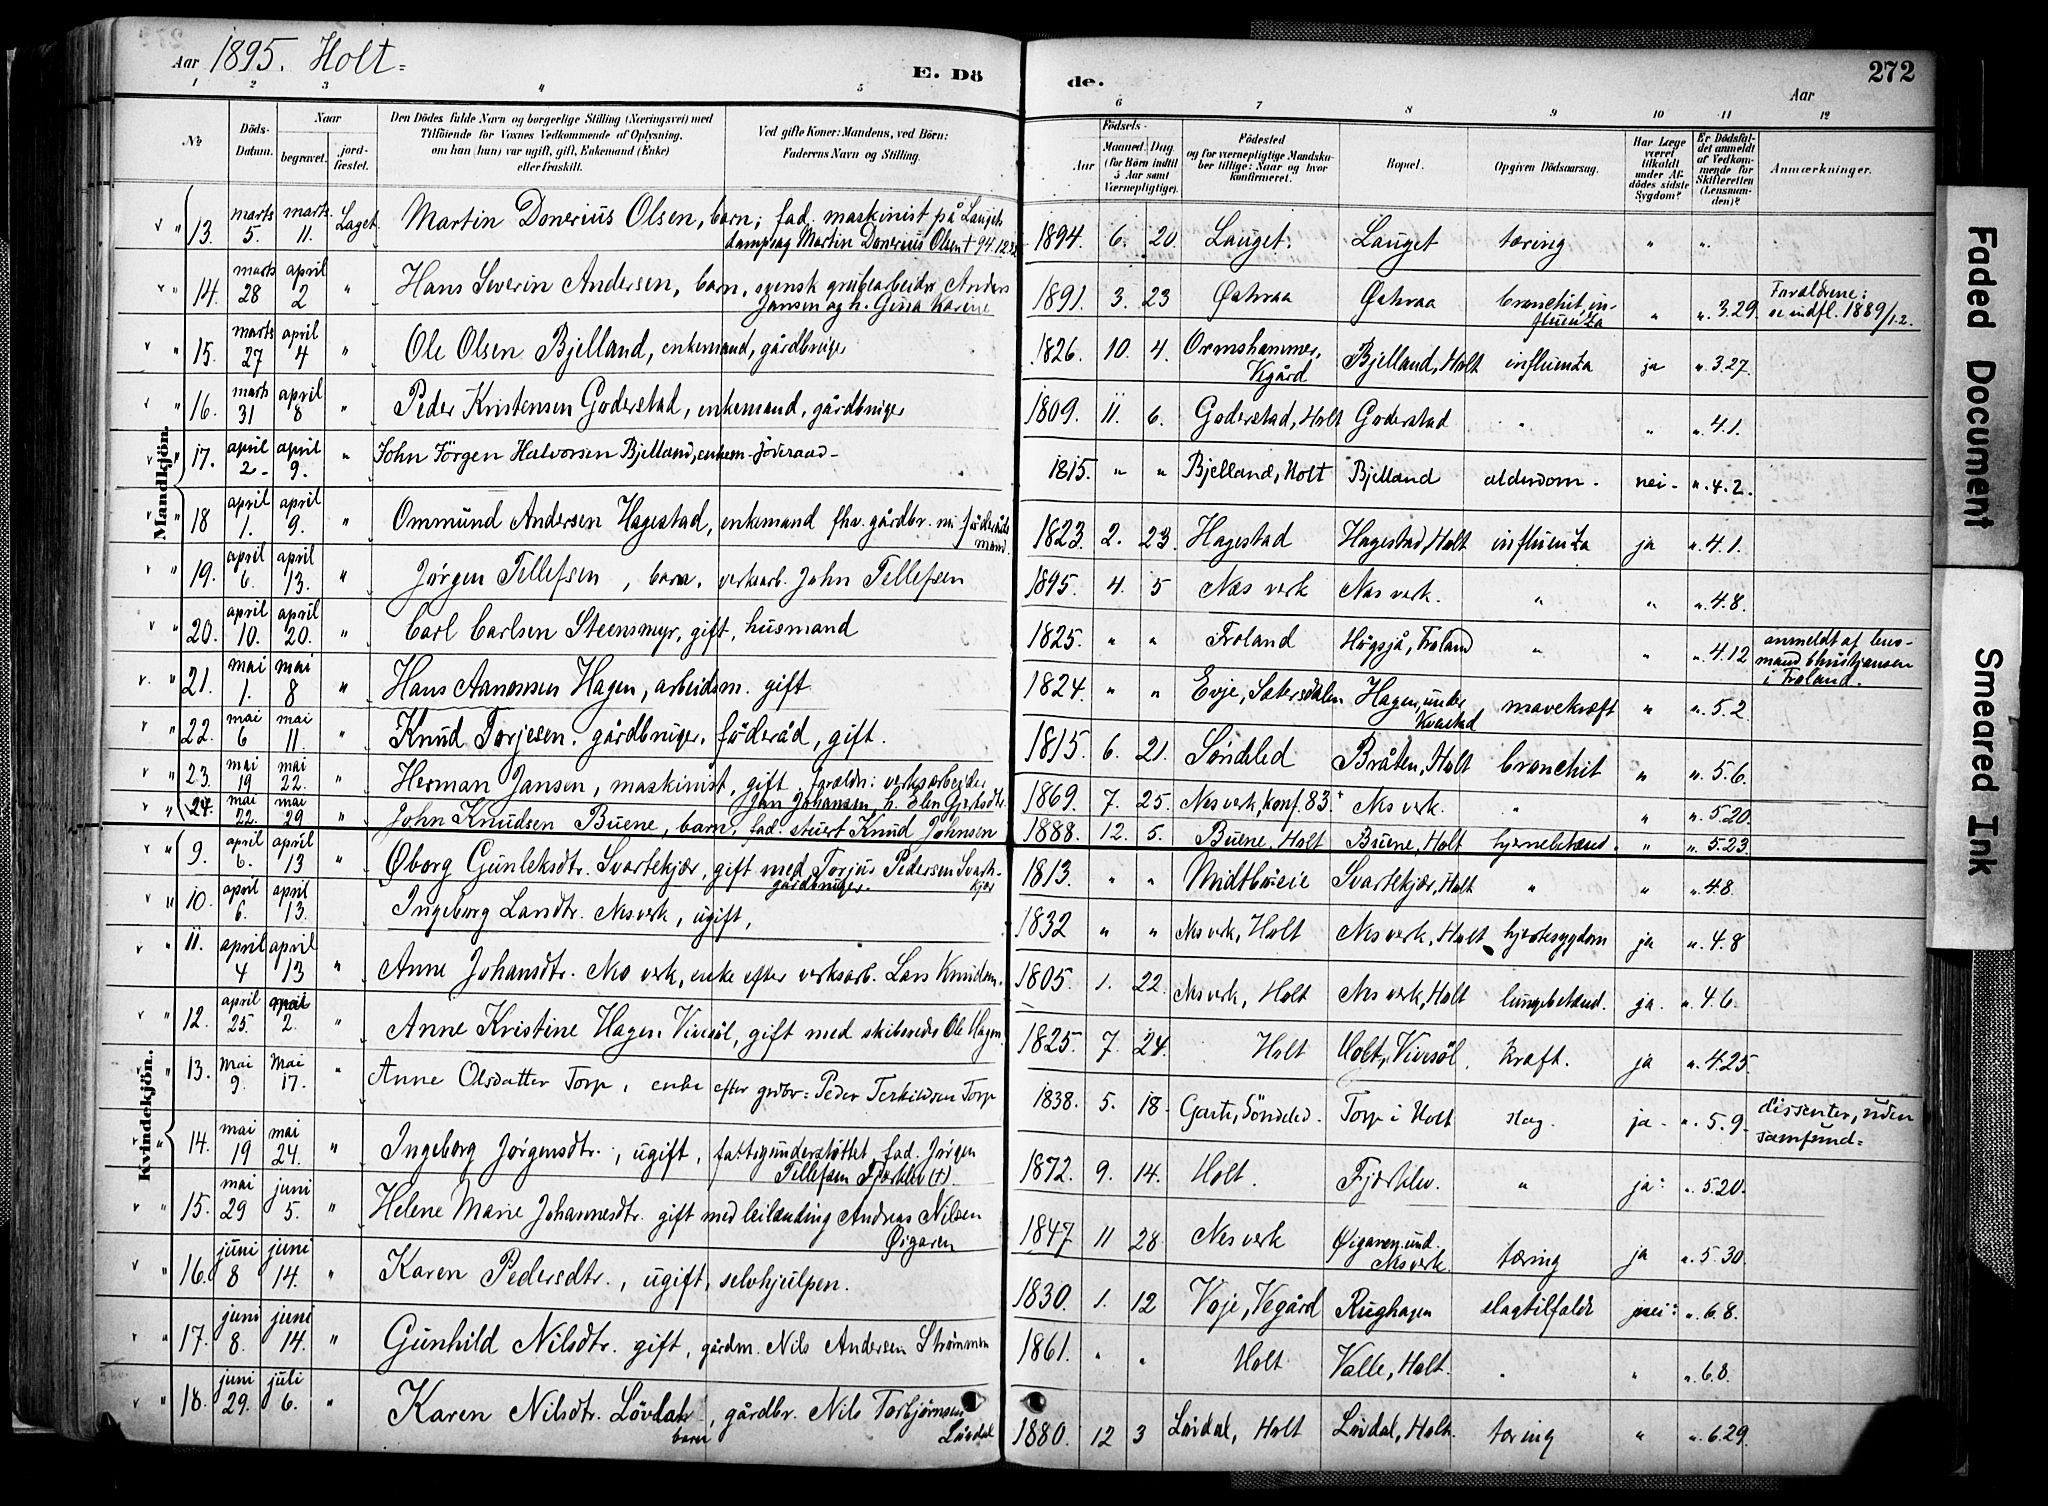 Aar 1895. Holt
E. Dö
de.
Aar
272
1 2 3 4 5 6 7 8 9 10 11 12
No
Döds-Datum.
Naar
begravet.
jord-fæstet.
Den Dödes fulde Navn og borgerlige Stilling (Næringsvei) med
Tilföiende for Voxnes Vedkommende af Oplysning,
om han (hun) var ugift, gift, Enkemand (Enke)
eller fraskilt.
Ved gifte Koner: Mandens, ved Börn:
Faderens Navn og Stilling.
Födsels-
Aar
Maaned. Dag.
(for Börn indtil
5 Aar samt
Værnepligtige).
Födested
og for værnepligtige Mandska-
ber tillige: Naar og hvor
konfirmeret.
Bopæl.
Opgiven Dödsaarsag.
Har Læge
været
tilkaldt
under Af-
dödes sidste
Sygdom?
Er Dödsfal-
det anmeldt
af Vedkom-
mende for
Skifteretten
(Lensman-
den)?
Anmærkninger.
Mandkjön.
" 13. marts 5. marts 11. Laget. Martin Donerius Olsen, barn; fad. maskinist på Lauget
dampsag Martin Donerius Olsen † 94.12. 1894. 6. 20. Lauget. Lauget tæring " "
" 14. marts 28 april 2 " Hans Severin Andersen, barn, svensk grubearbeider Anders
Jansen og h. Gina Karine 1891. 3. 23 Østeraa Østeraa bronchit, in-
fluenza " ". 3.29. Forældrene:
se indfl. 1889/1-2.
" 15. marts 27 april 4 " Ole Olsen Bjelland, enkemand, gårdbruger 1826. 10. 4. Ormshammer,
Vegård Bjelland, Holt influenza ja ". 3.27.
" 16. marts 31 april 8 " Peder Kristensen Goderstad, enkemand, gårdbruger 1809. 11. 6. Goderstad, Holt Goderstad " " ". 4.1.
" 17. april 2- april 9. " John Jörgen Halvorsen Bjelland, enkem- föderaad- 1815. " " Bjelland, Holt Bjelland alderdom. nei- ". 4.2.
" 18 april 1. april 9. " Ommund Andersen Hagestad, enkemand fhv. gårdbr. nu föderåds
mand. 1823. 2. 23. Hagestad Hagestad, Holt influenza ja ". 4.1.
" 19. april 6. april 13. " Jørgen Tellefsen, barn, verksarb. John Tellefsen 1895. 4. 5 Næs verk Næs verk. " " ". 4.8.
" 20. april 10. april 20. " Carl Carlsen Steensmyr, gift, husmand 1825. " " Froland Högsjå, Froland " " ". 4.12 anmeldt af lens-
mand Christiansen
i Froland.
" 21. mai 1. mai 8 " Hans Aanonsen Hagen, arbeidsm. gift 1824. " " Evje, Sætersdalen Hagen, under
Kvastad mavekræft " ". 5.2
" 22. mai 6 mai 11. " Knud Torjesen, gårdbruger, föderåd, gift. 1815. 6. 21. Söndeled Bråten, Holt bronchit " ". 5.6.
" 23. mai 19 mai 22. " Herman Jansen, maskinist, gift, forældr: verksarbeider
Jan Johansen, h. Elen Gjertsdtr. 1869. 7. 25. Nes verk, konf. 83. Nes verk. " " ". 5.20.
" 24. mai 22. mai 29 " John Knudsen Buene, barn, fad. stuert Knud Johnsen 1888. 12. 5. Buene, Holt Buene, Holt hjernebetænd. " ". 5.23.
Kvindekjön.
" 9. april 6. april 13 " Øborg Gunleksdtr. Svartekjær, gift med Torjus Pedersen Svarte-
kjær gårdbruger. 1813. " " Midtbøeie Svartekjær, Holt " " ". 4.8.
" 10. april 6. april 13. " Ingeborg Larsdtr. Nesverk, ugift, 1832 " " Nesverk, Holt Nesverk, Holt hjertesygdom ja ". 4.8
" 11. april 4 april 13 " Anne Johansdtr. Nes verk, enke efter verksarb. Lars Knudsen. 1805. 1. 22. Nesverk, Holt Nesverk, Holt lungebetænd. ja. ". 4.6.
" 12. april 25. mai 2. " Anne Kristine Hagen Vivesöl, gift med skibsreder Ole Hagen. 1825. 7. 24. Holt Holt, Vivesöl. kræft. ja ". 4.25.
" 13. Mai 9. Mai 17. " Anne Olsdatter Torp, enke efter grdbr= Peder Terkildsen Torp 1838. 5. 18. Garte, Söndeled. Torp i Holt slag. ja- ". 5.9. dissenter, uden
samfund=
" 14. mai 19 mai 24. " Ingeborg Jörgensdtr., ugift, fattigunderstöttet, fad. Jörgen
Tellefsen Fjærklev (†). 1872. 9. 14. Holt. Fjærklev. " ja: ". 5.20.
" 15. mai 29 juni 5. " Helene Marie Johannesdtr. gift med leilænding Andreas Nilsen
Øigaren 1847 11 28. Nes verk Øigaren und.
Nesverk. tæring ja ". 5.30.
" 16. juni 8 juni 14. " Karen Pedersdtr., ugift, selvhjulpen. 1830. 1. 12 Voje, Vegård Rughagen slagtilfælde nei: ". 6.8.
" 17. juni 8. juni 14. " Gunhild Nilsdtr. gift, gårdm. Nils Andersen Strømmen 1861. " " Holt Valle, Holt. " " ". 6.8.
" 18. juni 29. juli 6. " Karen Nilsdtr. Lövdal, barn, gårdbr. Nils Torbjörnsen
Lövdal 1880. 12 3 Lövdal, Holt Lövdal, Holt. tæring " ". 6.29.
Faded Document
Smeared Ink